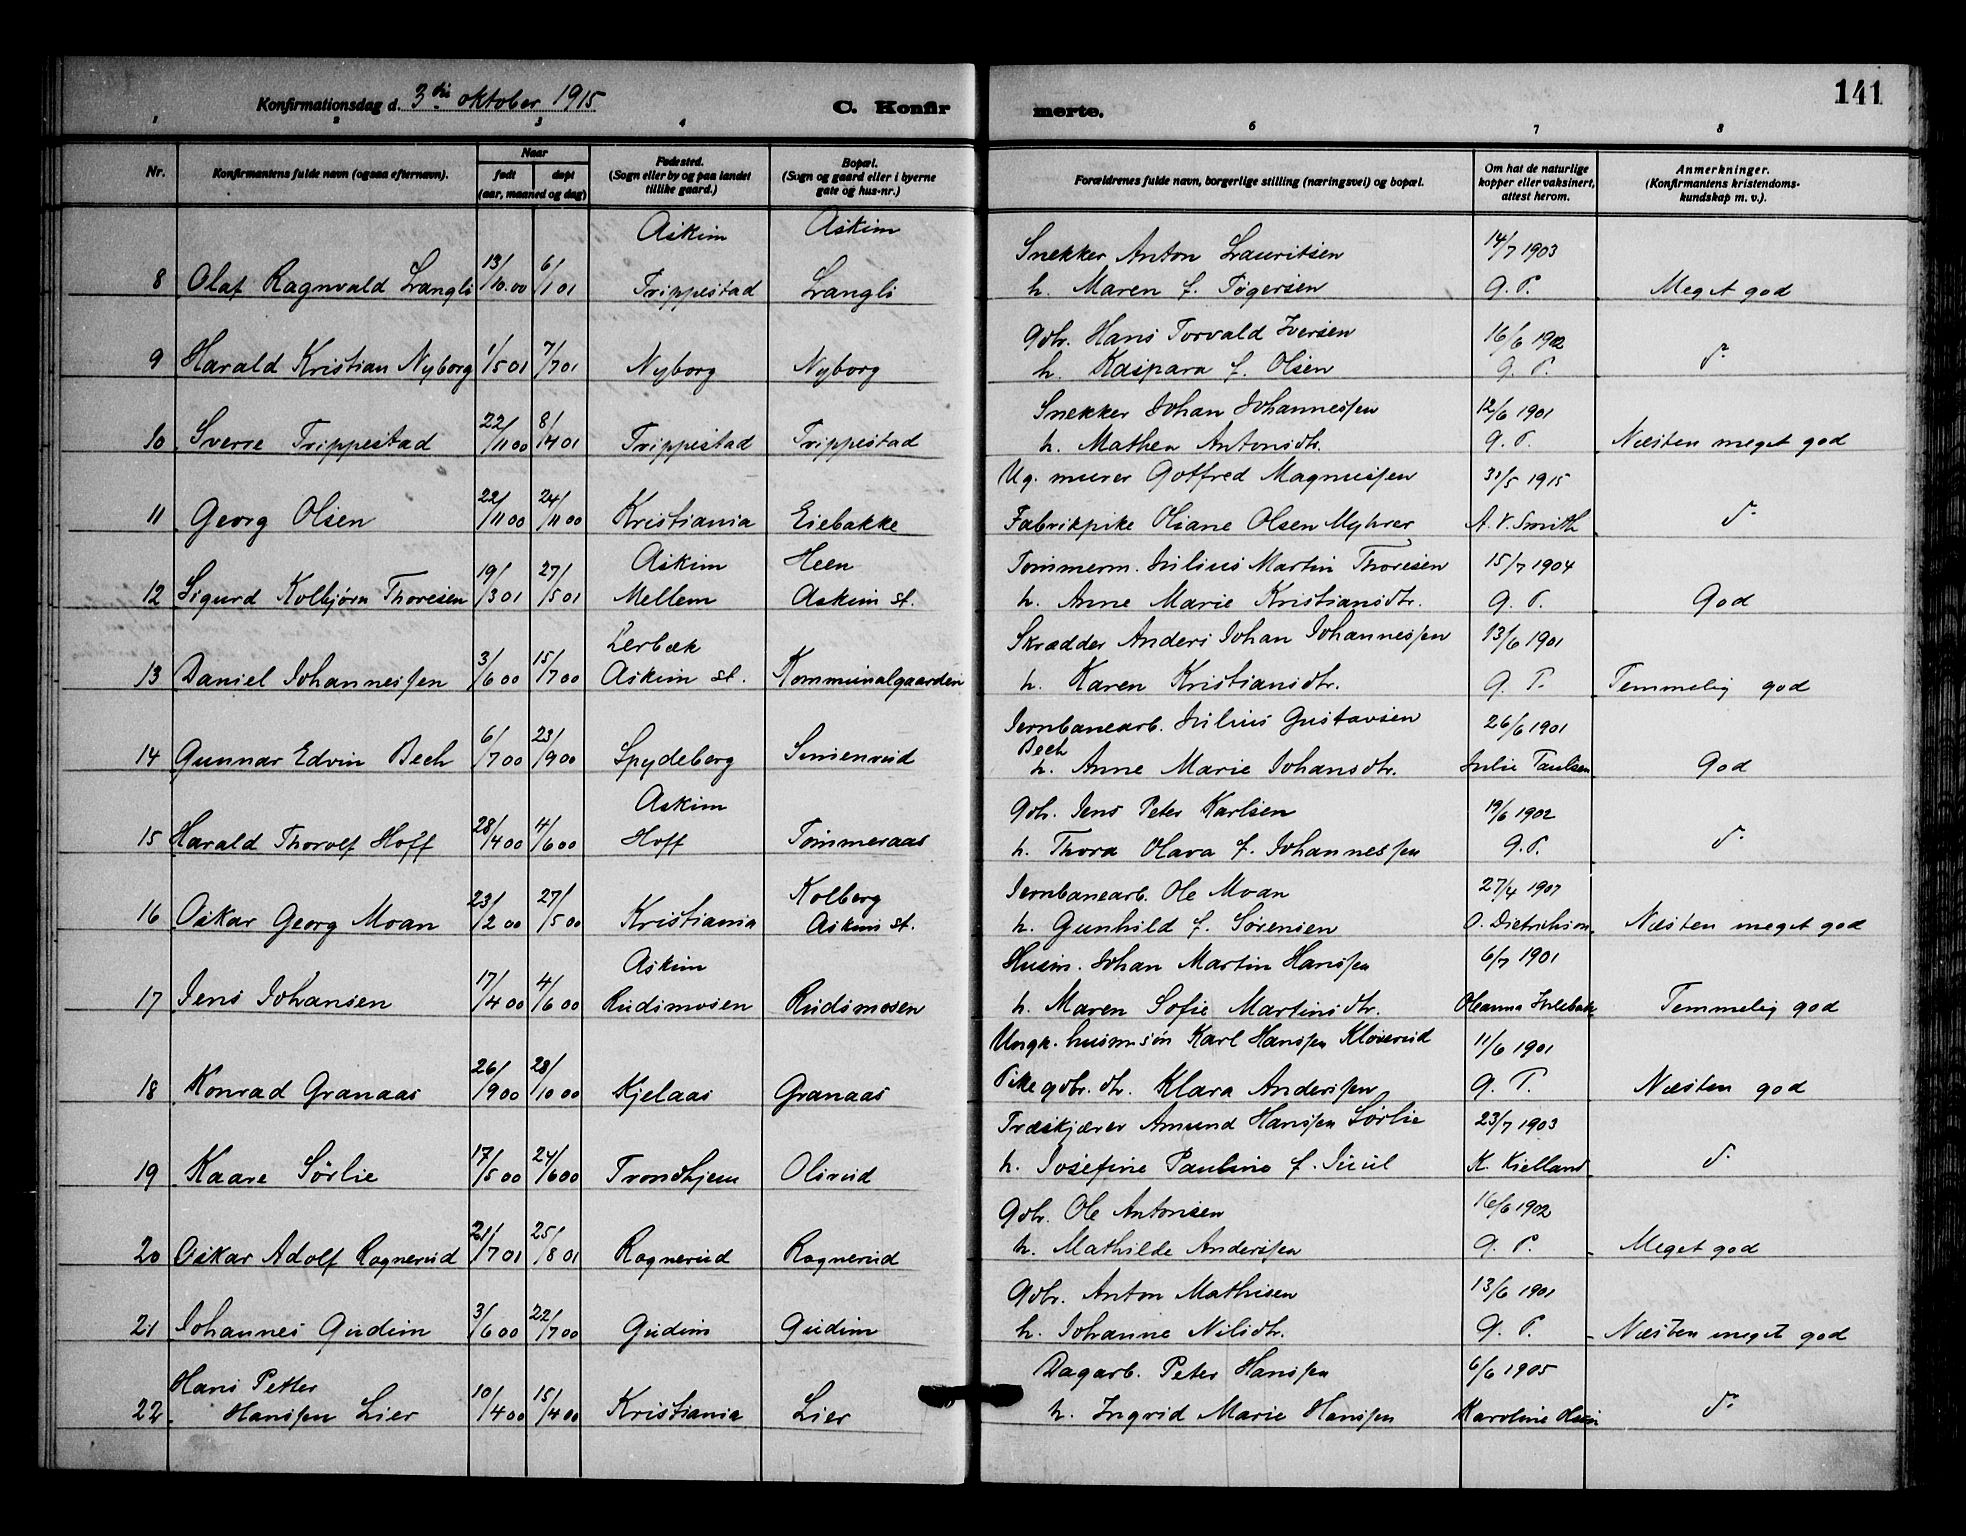 141
Konfirmationsdag d. 3die oktober 1915 C. Konfirmerte.
1 2 3 4 5 6 7 8
Nr. Konfirmantens fulde navn (ogsaa efternavn). Naar født døpt (aar, maaned og dag) Fødested. (Sogn eller by og paa landet tillike gaard.) Bopæl. (Sogn og gaard eller i byerne gate og hus-nr.) Forældrenes fulde navn, borgerlige stilling (næringsvei) og bopæl. Om hat de naturlige kopper eller vaksinert, attest herom. Anmerkninger. (Konfirmantens kristendomskundskap m. v.).
Askim Askim Snekker Anton Lauritsen 14/7 1903
8 Olaf Ragnvald Langli 13/10.00 6/1 01 Trippestad Langli h. Maren f. Tøgersen G.P. Meget god
Gbr. Hans Torvald Iversen 16/6 1902
9 Harald Kristian Nyborg 1/5 01 7/7 01 Nyborg Nyborg h. Kaspara f. Olsen G.P. d°
Snekker Johan Johannessen 12/6 1901
10 Sverre Trippestad 22/11 00 8/4 01 Trippestad Trippestad h. Mathea Antonsdtr. G.P. Næsten meget god
Ug. murer Gotfred Magnussen 31/5 1915
11 Georg Olsen 22/11 00 24/11 00 Kristiania Eiebakke Fabrikpike Oliane Olsen Myhrer A.V. Smith d°
Askim Heen Tømmerm. Julius Martin Thoresen 15/7 1904
12 Sigurd Kolbjørn Thoresen 19/3 01 27/5 01 Mellem Askim st. h. Anne Marie Kristiansdtr. G.P. God
Lerbæk Skrædder Anders Johan Johannessen 13/6 1901
13 Daniel Johannessen 3/6 00 15/7 00 Askim st. Kommunalgaarden h. Karen Kristiansdtr. G.P. Temmelig god
Jernbanearb. Julius Gustavsen 26/6 1901
Bech
14 Gunnar Edvin Bech 6/7 00 23/9 00 Spydeberg Simenrud h. Anne Marie Johansdtr. Julie Paulsen God
Askim Gbr. Jens Peter Karlsen 19/6 1902
15 Harald Thorolf Hoff 28/4 00 4/6 00 Hoff Tømmeraas h. Thora Olava f. Johannessen G.P. d°
Kolberg Jernbanearb. Ole Moan 27/4 1907
16 Oskar Georg Moan 23/2 00 27/5 00 Kristiania Askim st. h. Gunhild f. Sørensen O. Dietrichson Næsten meget god
Askim Husm. Johan Martin Hanssen 6/7 1901
17 Jens Johansen 17/4 00 4/6 00 Rudsmosen Rudsmosen h. Maren Sofie Martinsdtr. Oleanna Temmelig god
Ungk. husmsøn Karl Hanssen Kløverud 11/6 1901
18 Konrad Granaas 26/9 00 28/10 00 Kjelaas Granaas Pike gbr. dtr. Klara Anderssen G.P. Næsten god
Træskjærer Amund Hanssen Sørlie 23/7 1903
19 Kaare Sørlie 17/5 00 24/6 00 Trondhjem Olsrud h. Josefine Pauline f. Juul K. Kielland d°
Gbr. Ole Antonsen 16/6 1902
20 Oskar Adolf Ragnerud 21/7 01 25/8 01 Ragnerud Ragnerud h. Mathilde Anderssen G.P. Meget god
Gbr. Anton Mathisen 13/6 1901
21 Johannes Gudim 3/6 00 22/7 00 Gudim Gudim h. Johanne Nilsdtr. G.P. Næsten meget god
Hans Petter Dagarb. Peter Hanssen 6/6 1905
22 Hanssen Lier 10/4 00 15/4 00 Kristiania Lier h. Ingrid Marie Hanssen Karoline Olsen d°